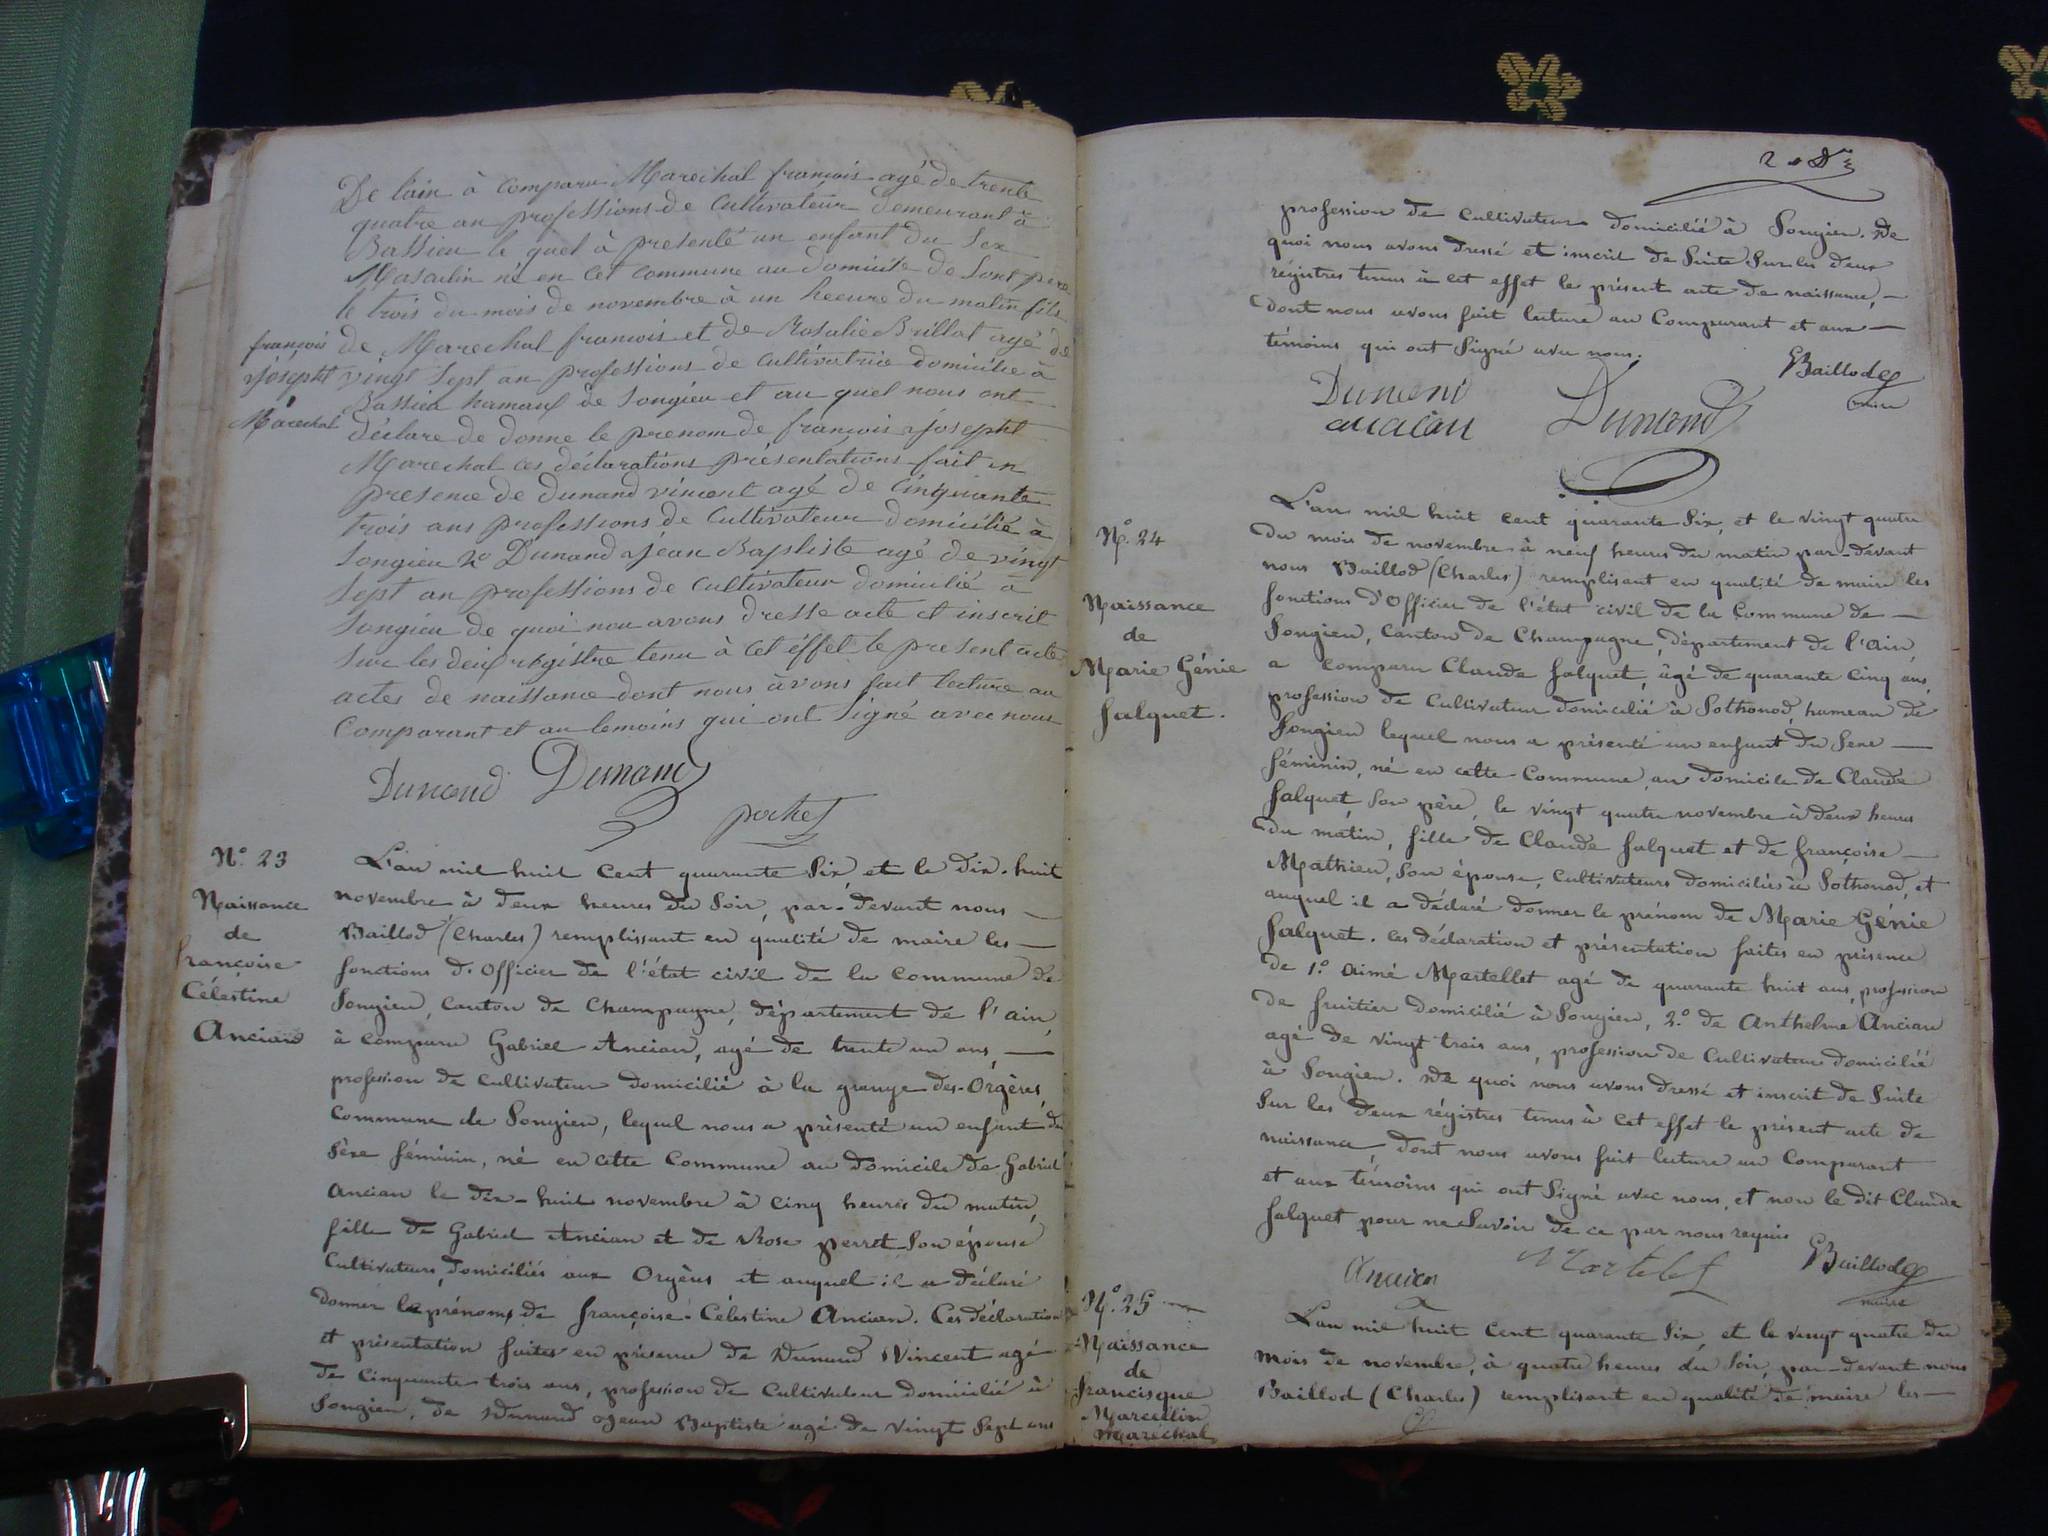 De l'ain à comparu Marechal francois agé de trente
quatre an professions de Cultivateur demeurant à
Bassieu le quel à presenté un enfant du Sex
Masculin né en cet commune au domicile de Sont pere
le trois du mois de novembre à un heeure du matin fils
de Marechal francois et de Rosalie Brillat agé de
vingt Sept an professions de Cultivatrice domicilie à
Bassieu hamaux de Songieu et au quel nous ont
déclare de donne le prenom de francois joseph
Marechal ces déclarations présentations fait en
presence de Dunand vincent agé de Cinquante
trois ans professions de Cultivateur domicilié à
Songieu 2º Dunand jean Baptiste agé de vingt
Sept an professions de Cultivateur domicilié à
Songieu de quoi nou avons dresse acte et inscrit
Sur les deux régistre tenu à Cet éffet le present acte
actes de naissance dont nous àvons fait lecture au
Comparant et au temoins qui ont Signé avec nous
françois
joseph
Maréchal
Dunand Dunand
pochet
Nº 23
Naissance
de
francoise
Célestine
Ancian
L'an mil huit Cent quarante Six et le dix-huit
novembre à deux heures du Soir, par-devant nous —
Baillod (Charles) remplissant en qualité de maire les —
fonctions d'Officier de l'état civil de la commune de
Songieu, canton de Champagne, département de l'ain,
à comparu Gabriel Ancian, agé de trente un ans, —
profession de Cultivateur domicilié à la grange des-Orgères,
Commune de Songieu, lequel nous a présenté un enfant du
Sèxe féminin, né en cette Commune au domicile de Gabriel
Ancian le dix-huit novembre à cinq heures du matin,
fille de Gabriel Ancian et de Rose perret Son épouse
Cultivateurs, domiciliés aux Orgères et auquel il a déclaré
donner les prénoms de françoise-Célestine Ancian. Ces déclaration
et présentation faites en présence de Dunand Vincent agé
de Cinquante trois ans, profession de Cultivateur domicilié à
Songieu, de Dunand Jean Baptiste agé de vingt Sept ans
profession de Cultivateur domicilié à Songieu. De
quoi nous avons dressé et inscrit de Suite Sur les deux
régistres tenus à cet effet le présent acte de naissance, —
dont nous avons fait lecture au Comparant et aux —
témoins qui ont Signé avec nous.
Baillod
maire
Dunand Dunand
ancian
Nº 24
Naissance
de
Marie Génie
falquet.
L'an mil huit cent quarante Six, et le vingt quatre
du mois de novembre à neuf heures du matin par-devant
nous Baillod (Charles) remplisant en qualité de maire les
fonctions d'Officier de l'état civil de la Commune de —
Songieu, Canton de Champagne, département de l'ain,
a comparu Claude falquet, âgé de quarante Cinq ans,
profession de Cultivateur domicilié à Sothonod, hameau de
Songieu lequel nous a présenté un enfant du Sexe —
féminin, né en cette Commune, au domicile de Claude
falquet, Son père, le vingt quatre novembre à deux heures
du matin, fille de Claude falquet et de françoise —
Mathieu, Son épouse, Cultivateurs domiciliés à Sothonod, et
auquel il a déclaré donner le prénom de Marie Génie
falquet. Ces déclaration et présentation faites en présence
de 1.º Aimé Martellet agé de quarante huit ans, profession
de fruitier domicilié à Songieu, 2.º de Anthelme Ancian
agé de vingt trois ans, profession de Cultivateur domicilié
à Songieu. De quoi nous avons dressé et inscrit de Suite
Sur les deux régistres tenus à cet effet le présent acte de
naissance, dont nous avons fait lecture au Comparant
et aux témoins qui ont Signé avec nous, et non le dit Claude
falquet pour ne Savoir de ce par nous requis
Ancian Martelet Baillod
maire
Nº. 25
Naissance
de
francisque
Marcellin
Maréchal
L'an mil huit Cent quarante Six et le vingt quatre du
mois de novembre, à quatre heures du Soir, par-devant nous
Baillod (Charles) remplisant en qualité de maire les —